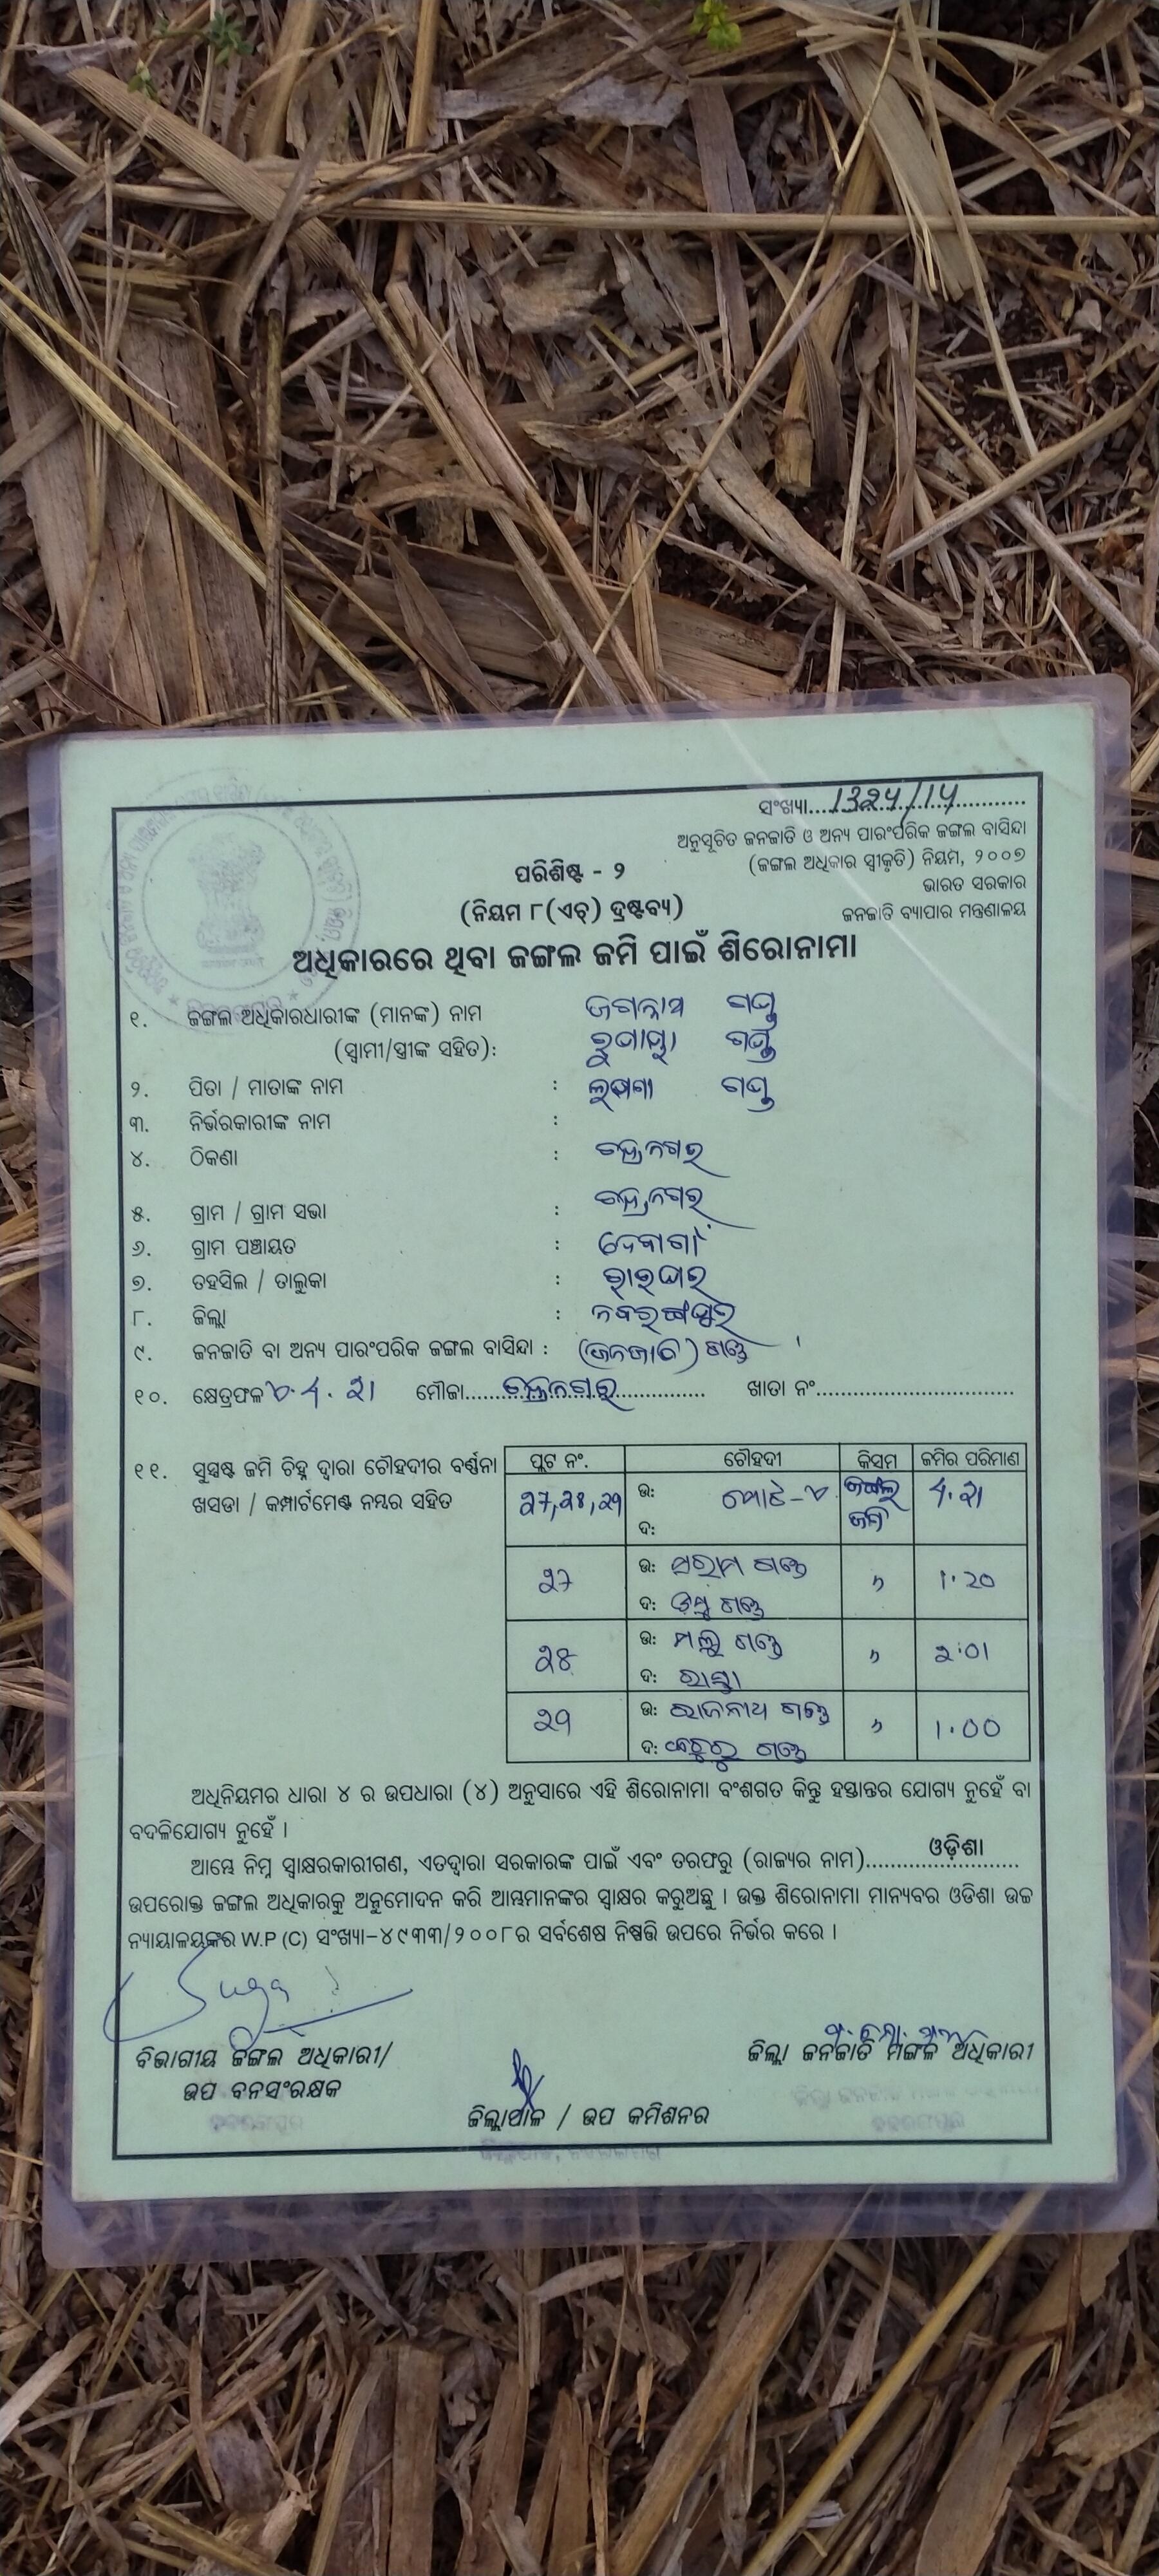 ସଂଖ୍ୟା
ଅନୁସୂଚିତ ଜନଜାତି ଓ ଅନ୍ୟ ପାରଂପରିକ ଜଙ୍ଗଲ ବାସିନ୍ଦା
(ଜଙ୍ଗଲ ଅଧିକାର ସ୍ୱୀକୃତି) ନିୟମ, ୨୦୦୭
ଭାରତ ସରକାର
ଜନଜାତି ବ୍ୟାପାର ମନ୍ତ୍ରଣାଳୟ
ପରିଶିଷ୍ଟ - ୨
(ନିୟମ ୮(ଏଚ୍) ଦ୍ରଷ୍ଟବ୍ୟ)
ଅଧିକାରରେ ଥିବା ଜଙ୍ଗଲ ଜମି ପାଇଁ ଶିରୋନାମା
୧. ଜଙ୍ଗଲ ଅଧିକାରଧାରୀଙ୍କ (ମାନଙ୍କ) ନାମ ଜଗନ୍ନାଥ ଗଣ୍ଡ
(ସ୍ୱାମୀ/ସ୍ତ୍ରୀଙ୍କ ସହିତ): ଗଣ୍ଡ
୨. ପିତା / ମାତାଙ୍କ ନାମ : ଗଣ୍ଡ
୩. ନିର୍ଭରକାରୀଙ୍କ ନାମ :
୪. ଠିକଣା :
୫. ଗ୍ରାମ / ଗ୍ରାମ ସଭା :
୬. ଗ୍ରାମ ପଞ୍ଚାୟତ :
୭. ତହସିଲ / ତାଲୁକା : ରାଇଘର
୮. ଜିଲ୍ଲା : ନବରଙ୍ଗପୁର
୯. ଜନଜାତି ବା ଅନ୍ୟ ପାରଂପରିକ ଜଙ୍ଗଲ ବାସିନ୍ଦା : (ଜନଜାତି) ଗଣ୍ଡ
୧୦. କ୍ଷେତ୍ରଫଳ 4.21 ମୌଜା ଖାତା ନଂ
୧୧. ସୁସ୍ପଷ୍ଟ ଜମି ଚିହ୍ନ ଦ୍ୱାରା ଚୌହଦୀର ବର୍ଣ୍ଣନା
ଖସଡା / କମ୍ପାର୍ଟମେଣ୍ଟ ନମ୍ବର ସହିତ
ପ୍ଲଟ ନଂ. ଚୌହଦୀ କିସମ ଜମିର ପରିମାଣ
27,28,29 ଉ: ଜଙ୍ଗଲ 4.21
ଦ: ଜମି
27 ଉ: ଗଣ୍ଡ " 1.20
ଦ: ଗଣ୍ଡ
28 ଉ: ଗଣ୍ଡ " 2.01
ଦ: ରାସ୍ତା
29 ଉ: ରାଜନାଥ ଗଣ୍ଡ " 1.00
ଦ: ଗଣ୍ଡ
ଅଧିନିୟମର ଧାରା ୪ ର ଉପଧାରା (୪) ଅନୁସାରେ ଏହି ଶିରୋନାମା ବଂଶଗତ କିନ୍ତୁ ହସ୍ତାନ୍ତର ଯୋଗ୍ୟ ନୁହେଁ ବା
ବଦଳିଯୋଗ୍ୟ ନୁହେଁ ।
ଆମ୍ଭେ ନିମ୍ନ ସ୍ୱାକ୍ଷରକାରୀଗଣ, ଏତଦ୍ୱାରା ସରକାରଙ୍କ ପାଇଁ ଏବଂ ତରଫରୁ (ରାଜ୍ୟର ନାମ) ଓଡ଼ିଶା
ଉପରୋକ୍ତ ଜଙ୍ଗଲ ଅଧିକାରକୁ ଅନୁମୋଦନ କରି ଆମ୍ଭମାନଙ୍କର ସ୍ୱାକ୍ଷର କରୁଅଛୁ । ଉକ୍ତ ଶିରୋନାମା ମାନ୍ୟବର ଓଡିଶା ଉଚ୍ଚ
ନ୍ୟାୟାଳୟଙ୍କର W.P (C) ସଂଖ୍ୟା-୪୯୩୩/୨୦୦୮ର ସର୍ବଶେଷ ନିଷ୍ପତ୍ତି ଉପରେ ନିର୍ଭର କରେ ।
ବିଭାଗୀୟ ଜଙ୍ଗଲ ଅଧିକାରୀ/
ଉପ ବନସଂରକ୍ଷକ
ଜିଲ୍ଲାପାଳ / ଉପ କମିଶନର
ଜିଲ୍ଲା ଜନଜାତି ମଙ୍ଗଳ ଅଧିକାରୀ